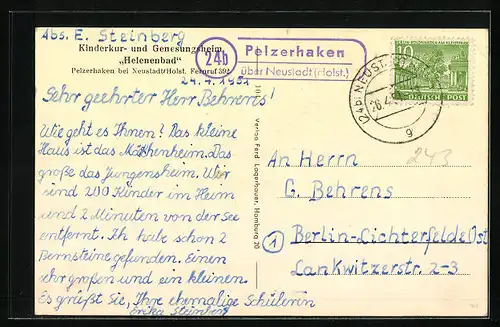 Abs. E. Steinberg
Kinderkur- und Genesungsheim
„Helenenbad"
Pelzerhaken bei Neustadt/Holst. Fernruf 392
24.4.1951
Sehr geehrter Herr Behrens!
Wie geht es Ihnen? Das kleine
Haus ist das Mädchenheim. Das
große das Jungensheim. Wir
sind 200 Kinder im Heim
und 2 Minuten von der See
entfernt. Ich habe schon 2
Bernsteine gefunden. Einen
sehr großen und ein kleinen.
Es grüßt Sie, Ihre ehemalige Schülerin
Erika Steinberg
24b
Pelzerhaken
über Neustadt (Holst.)
Verlag Ferd. Lagerbauer, Hamburg 20
(24b) NEUST
26.4
g
10
DEUTSCHE POST
243
An Herrn
G. Behrens
1
Berlin-Lichterfelde Ost
Lankwitzerstr. 2-3